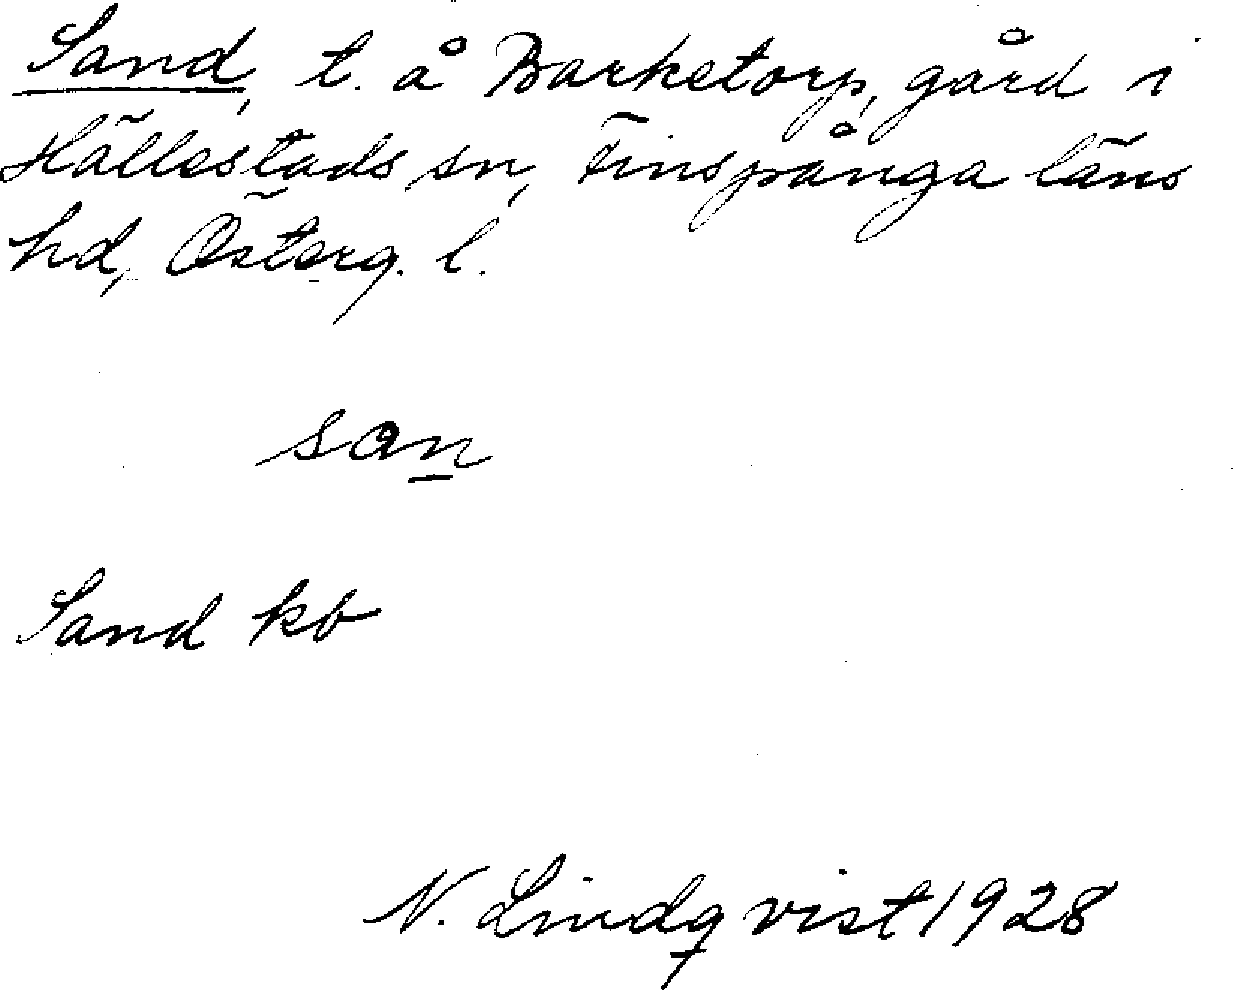 Sand, t. å Barketorp, gård i
Hällestads sn, Finspånga läns
hd, Österg. l.
san
Sand kb
N. Lindqvist 1928